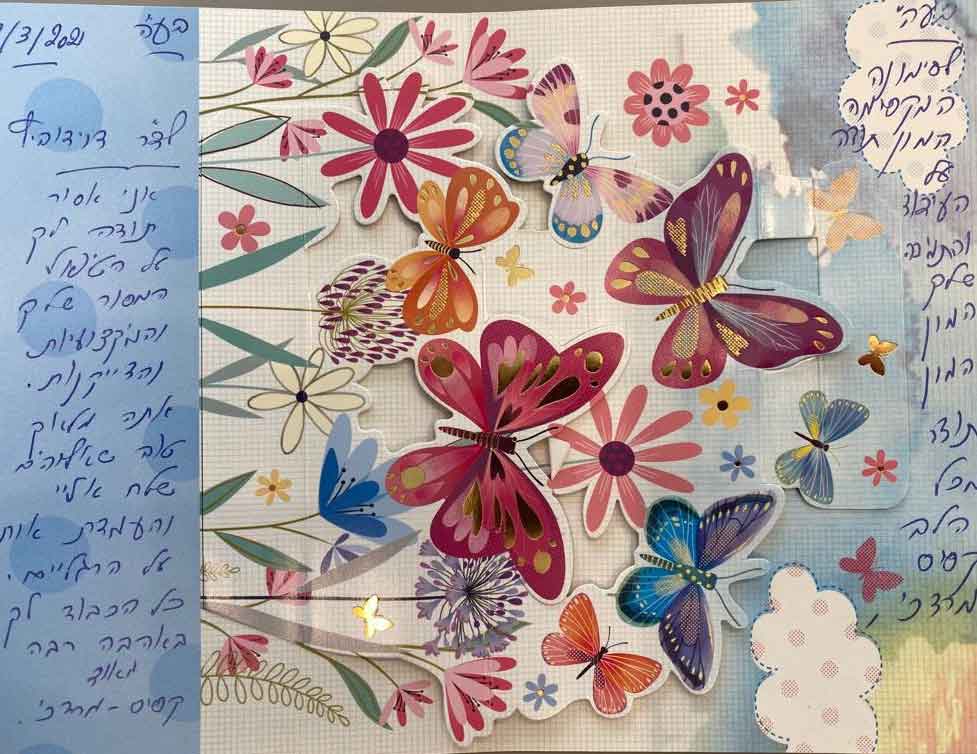 בעה"
לסימונה
המקסימה
המון תודה
על
העידוד
והתמיכה
שלך
המון
המון
תודה
מכל
הלב
קסיס
מרדכי
בע"ה
/3/2021
לד"ר דוידוביץ
אני אסיר
תודה לך
על הטיפול
המסור שלך
והמקצועיות
והדייקנות.
אתה מלאך
טוב שאלוהים
שלח אליי
והעמדת אותי
על הרגליים.
כל הכבוד לך
באהבה רבה
מאוד
קסיס - מרדכי.